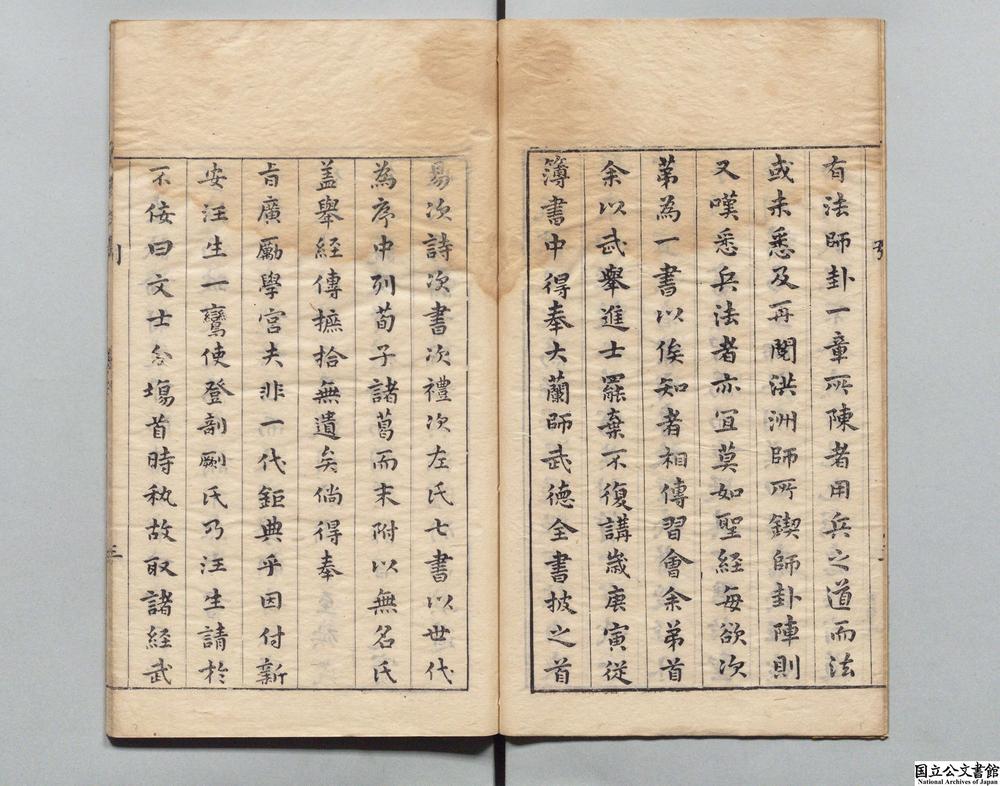 有法師卦一章所陳者用兵之道而法
或未悉及再閱洪洲師所鍥師卦陣則
又嘆悉兵法者亦宜莫如聖經每欲次
苐為一書以俟知者相傳習會余苐首
余以武舉進士罷棄不復講歲庚寅從
簿書中得奉大蘭師武德全書披之首
易次詩次書次禮次左氏七書以世代
為序中列荀子諸葛而末附以無名氏
盖舉經傳摭拾無遺矣倘得奉
㫖廣勵學宮夫非一代鉅典乎因付新
安汪生一鸞使登剞劂氏乃汪生請於
不佞曰文士分塲首時秇故取諸經武
國立公文書館
National Archives of Japan